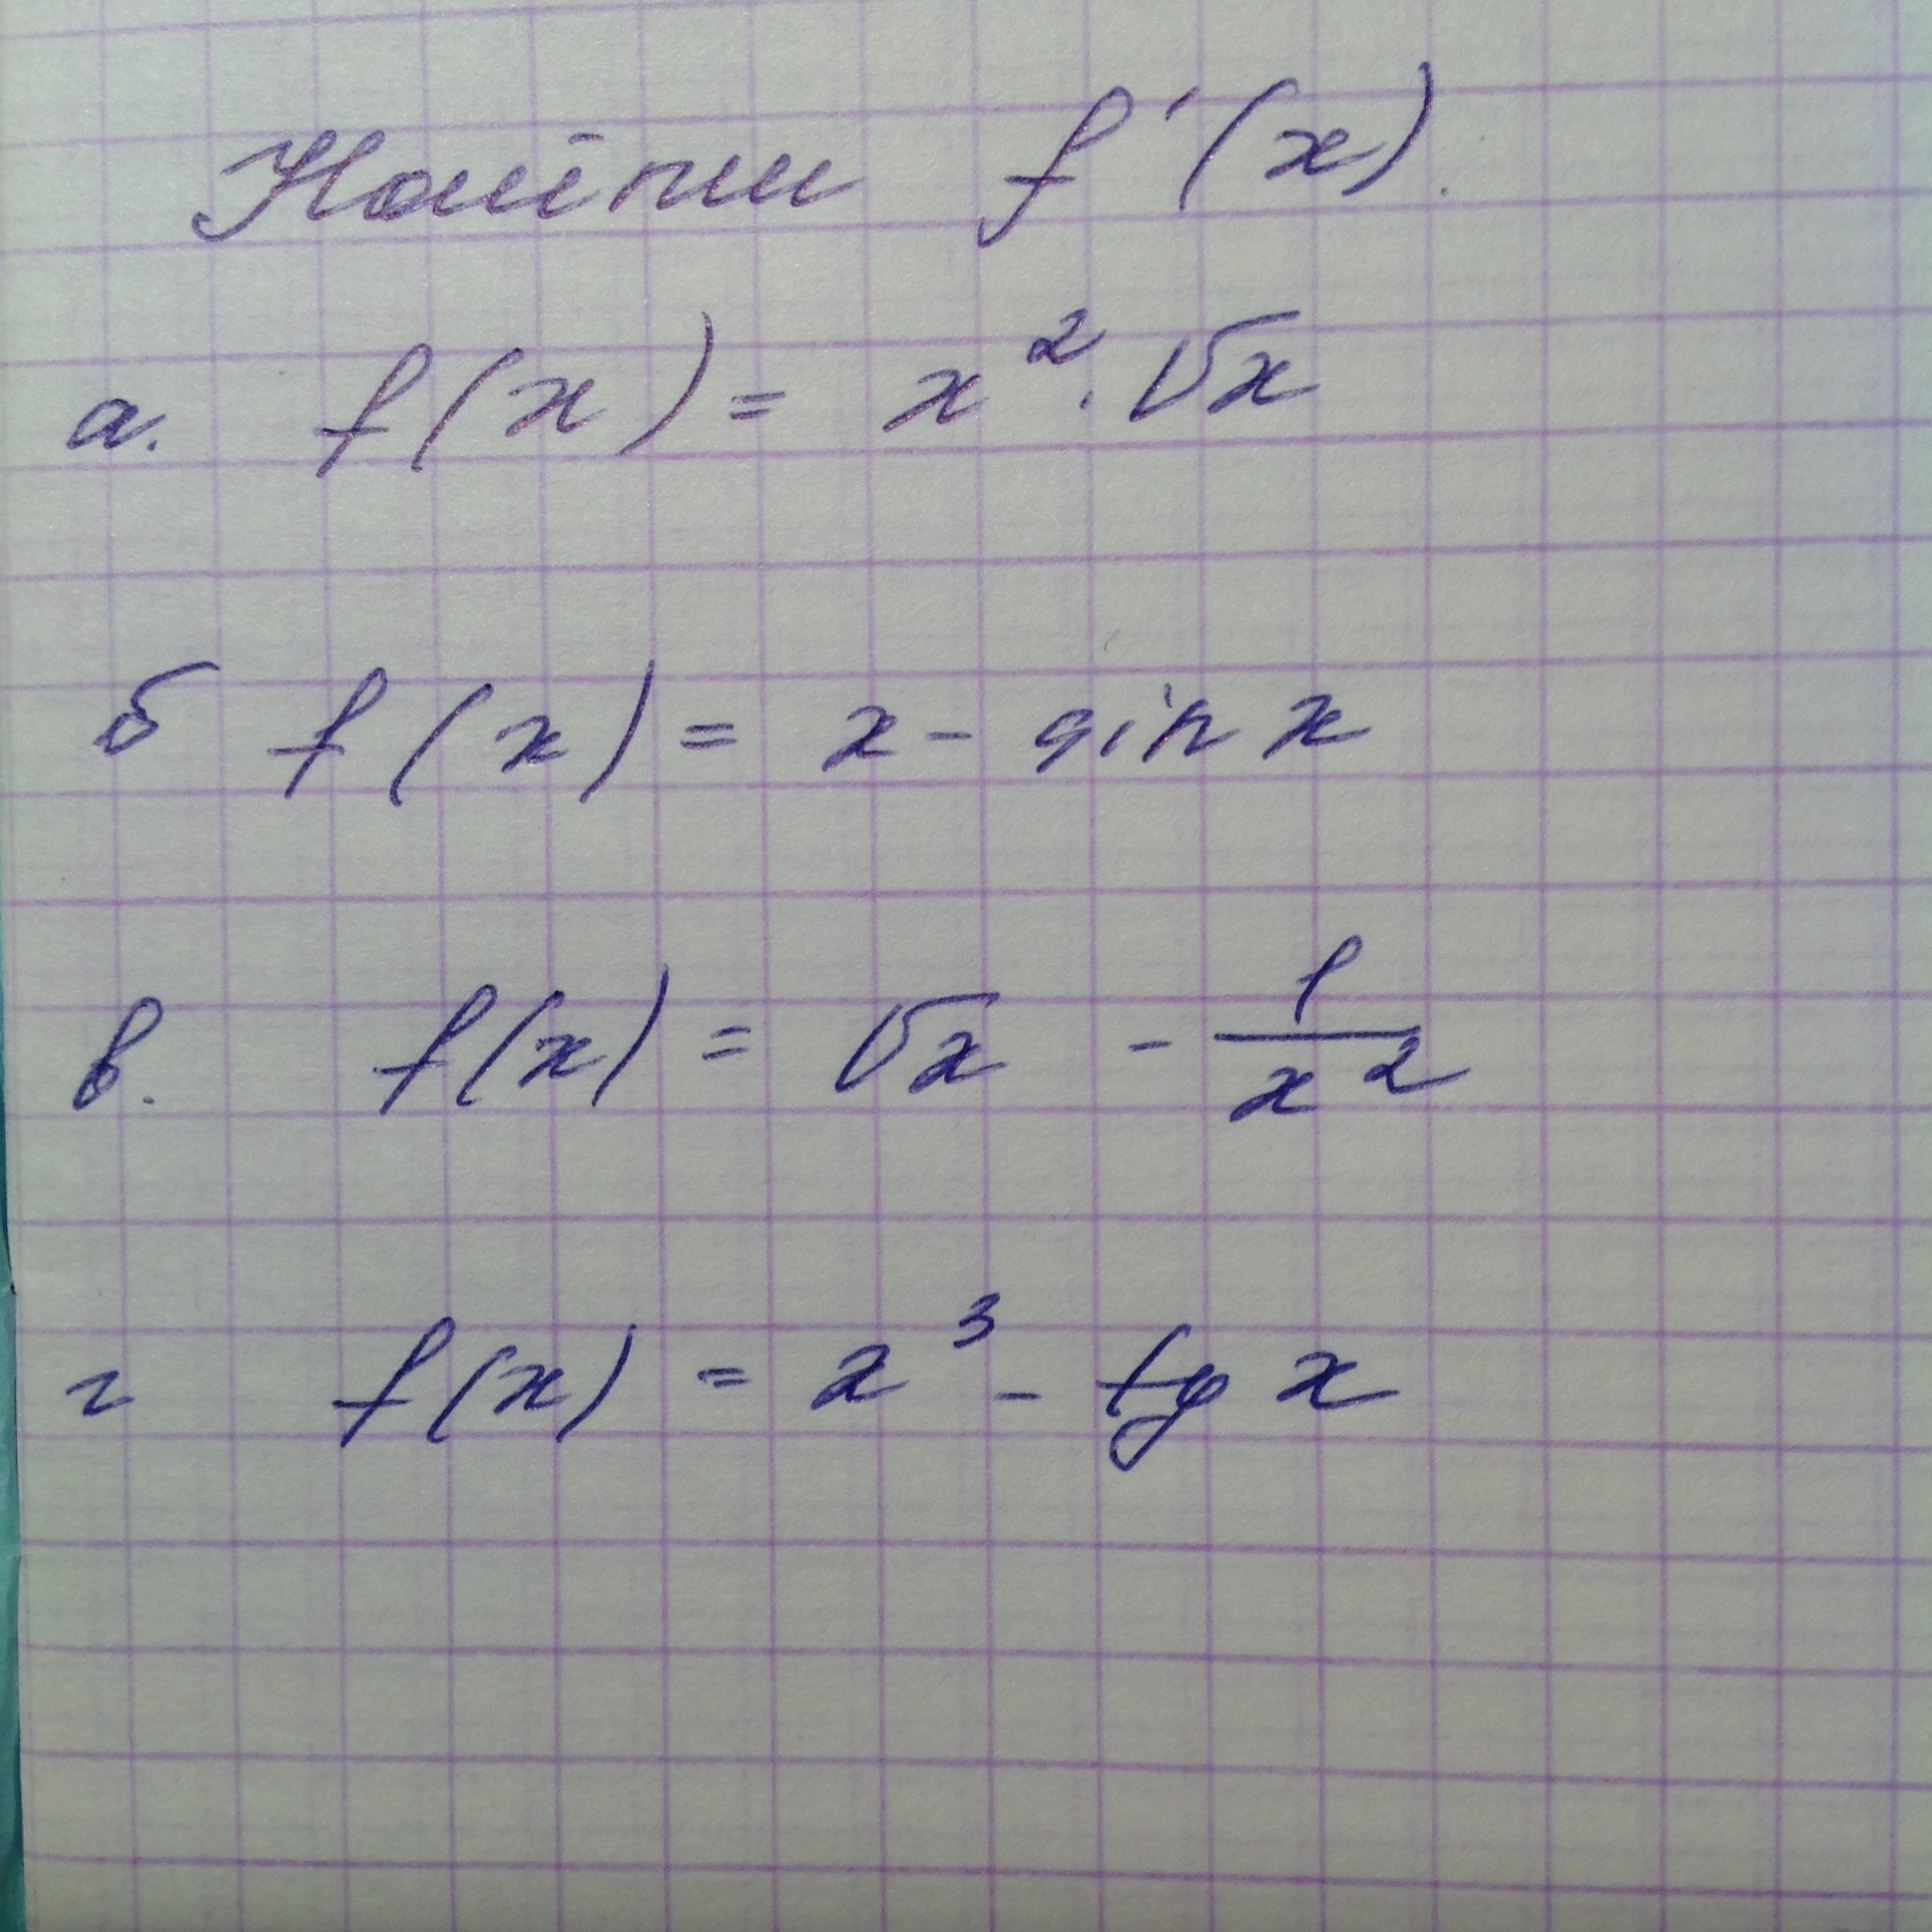 Найти f'(x).
а. f(x) = x² · √x
б f(x) = x - sin x
в. f(x) = √x - 1/x²
г f(x) = x³ - tg x